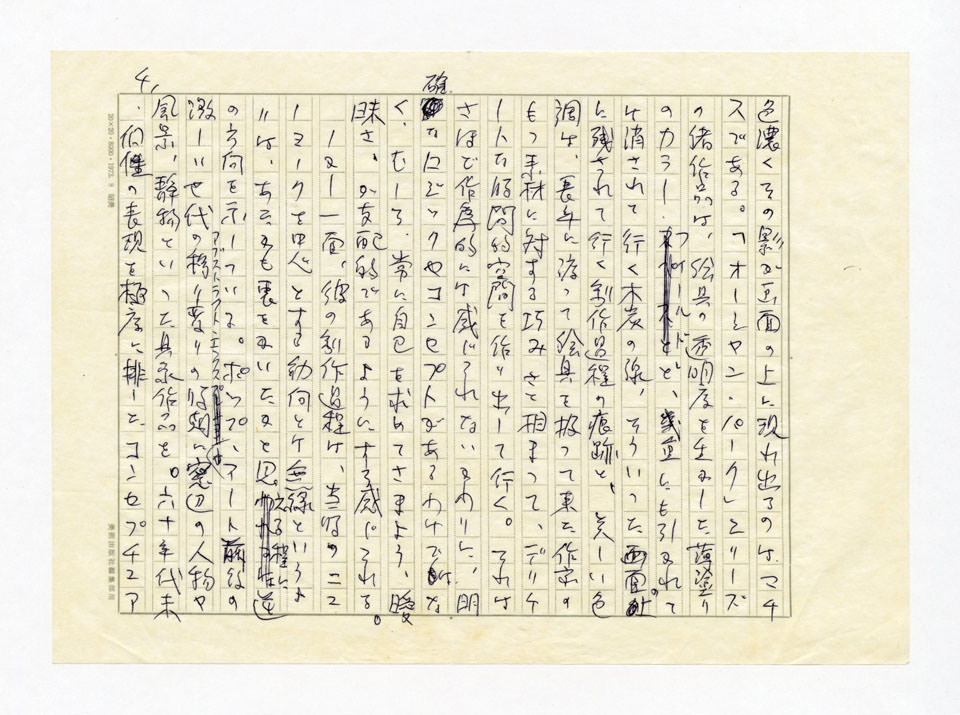 色濃くその影が画面の上に現れ出るのは、マチ
スである。「オーシャン・パーク」シリーズ
の諸作品は、絵具の透明度を生かした薄塗り
のカラー・フィールドと、幾重にも引かれて
は消されて行く木炭の線、そういった画面
に残されて行く制作過程の痕跡と、美しい色
調は、長年に渡って絵具を扱って来た作家の
もつ素材に対する巧みさと相まって、デリケ
ートな時間的空間を作り出して行く。それは
さほど作為的には感じられないかわりに、明
確なロジックやコンセプトがあるわけではな
く、むしろ、常に自己を求めてさまよう、曖
昧さ、が支配的であるように感じられる。
しかし一面、彼の制作過程は、当時のニュ
ーヨークを中心とする動向とは無縁というよ
りは、あたかも裏をかいたかと思える程に逆
の方向を示している。ポップ・アート前後の
アブストラクト・エクスプ
激しい世代の移り変りの時期に窓辺の人物や
風景、静物といった具象作品を。六十年代末
、何
の表現を極度に排したコンセプチュア
4,
20×20